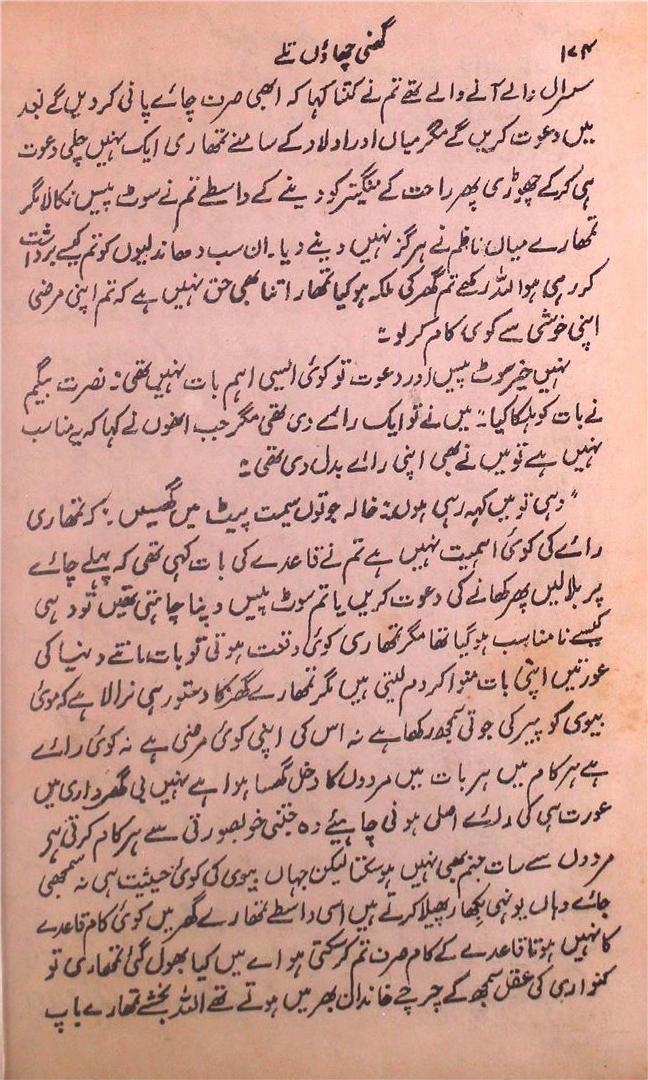 ۱۷۴
گھنی چھاؤں تلے
سسرال والے آنے والے تھے تم نے کتنا کہا کہ ابھی صرف چائے پانی کر دیں گے بعد
میں دعوت کریں گے مگر میاں اور اولاد کے سامنے تمھاری ایک نہیں چلی دعوت
ہی کر کے چھوڑی پھر راحت کے منگیتر کو دینے کے واسطے تم نے سوٹ پیس نکالا مگر
تمھارے میاں ناظم نے ہرگز نہیں دینے دیا۔ ان سب دھاندلیوں کو تم کیسے برداشت
کر رہی ہو اللہ رکھے تم گھر کی ملکہ ہو کیا تمھارا اتنا بھی حق نہیں ہے کہ تم اپنی مرضی
اپنی خوشی سے کوی کام کر لو"
نہیں خیر سوٹ پیس اور دعوت تو کوئی ایسی اہم بات نہیں تھی" نصرت بیگم
نے بات کو ہلکا کیا" میں نے تو ایک رائے دی تھی مگر جب انھوں نے کہا کہ یہ مناسب
نہیں ہے تو میں نے بھی اپنی رائے بدل دی تھی"
"وہی تو میں کہہ رہی ہوں" خالہ جوتوں سمیت پیٹ میں گھسیں" کہ تمھاری
رائے کی کوئی اہمیت نہیں ہے تم نے قاعدے کی بات کہی تھی کہ پہلے چائے
پر بلا لیں پھر کھانے کی دعوت کریں یا تم سوٹ پیس دینا چاہتی تھیں تو وہی
کیسے نامناسب ہو گیا تھا مگر تمھاری کوئی وقعت ہوتی تو بات مانتے دنیا کی
عورتیں اپنی بات منوا کر دم لیتی ہیں مگر تمھارے گھر کا دستور ہی نرالا ہے کہ موئی
بیوی کو پیر کی جوتی سمجھ رکھا ہے نہ اس کی اپنی کوئی مرضی ہے نہ کوئی رائے
ہے ہر کام میں ہر بات میں مردوں کا دخل گھسا ہوا ہے نہیں بی گھر داری میں
عورت ہی کی رائے اصلی ہونی چاہیئے وہ جتنی خوبصورتی سے ہر کام کرتی ہے
مردوں سے سات جنم بھی نہیں ہو سکتا لیکن جہاں بیوی کی کوئی حیثیت ہی نہ سمجھی
جائے وہاں یونہی بکھار پھیلا کرتے ہیں اسی واسطے تمھارے گھر میں کوئی کام قاعدے
کا نہیں ہوتا قاعدے کے کام صرف تم کر سکتی ہو اے میں کیا بھول گئی تمھاری تو
کنواری کی عقل سمجھ کے چرچے خاندان بھر میں ہوتے تھے اللہ بخشے تمھارے باپ